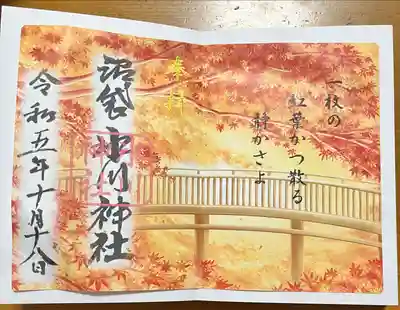 一枚の
紅葉かつ散る
静かさよ
奉拝
沼袋 氷川神社
令和五年十月十八日